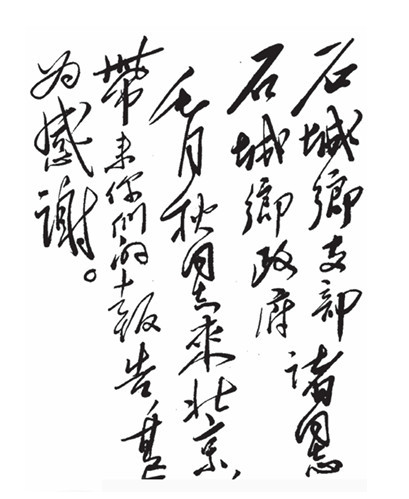 石城鄉支部諸同志
石城鄉政府
毛月秋同志來北京,
帶來你們的報告,甚
为感謝。